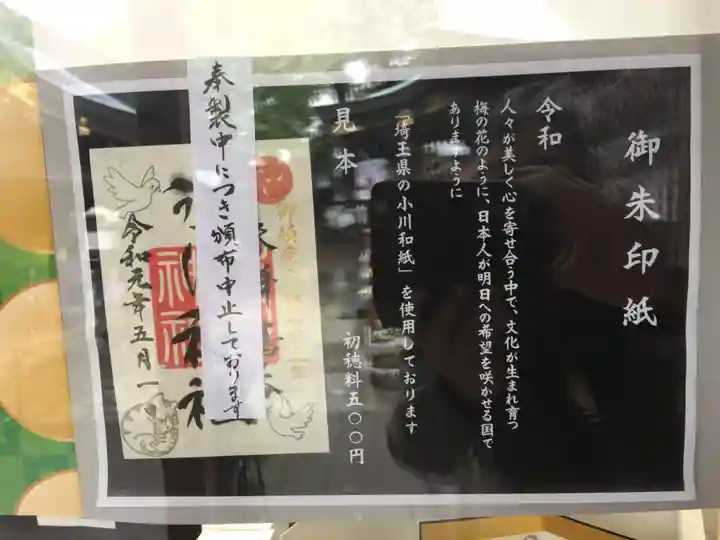 御朱印紙
令和
人々が美しく心を寄せ合う中で、文化が生まれ育つ
梅の花のように、日本人が明日への希望を咲かせる国で
ありますように
「埼玉県の小川和紙」を使用しております
見本
初穂料五〇〇円
奉製中につき頒布中止しております
令和元年五月一